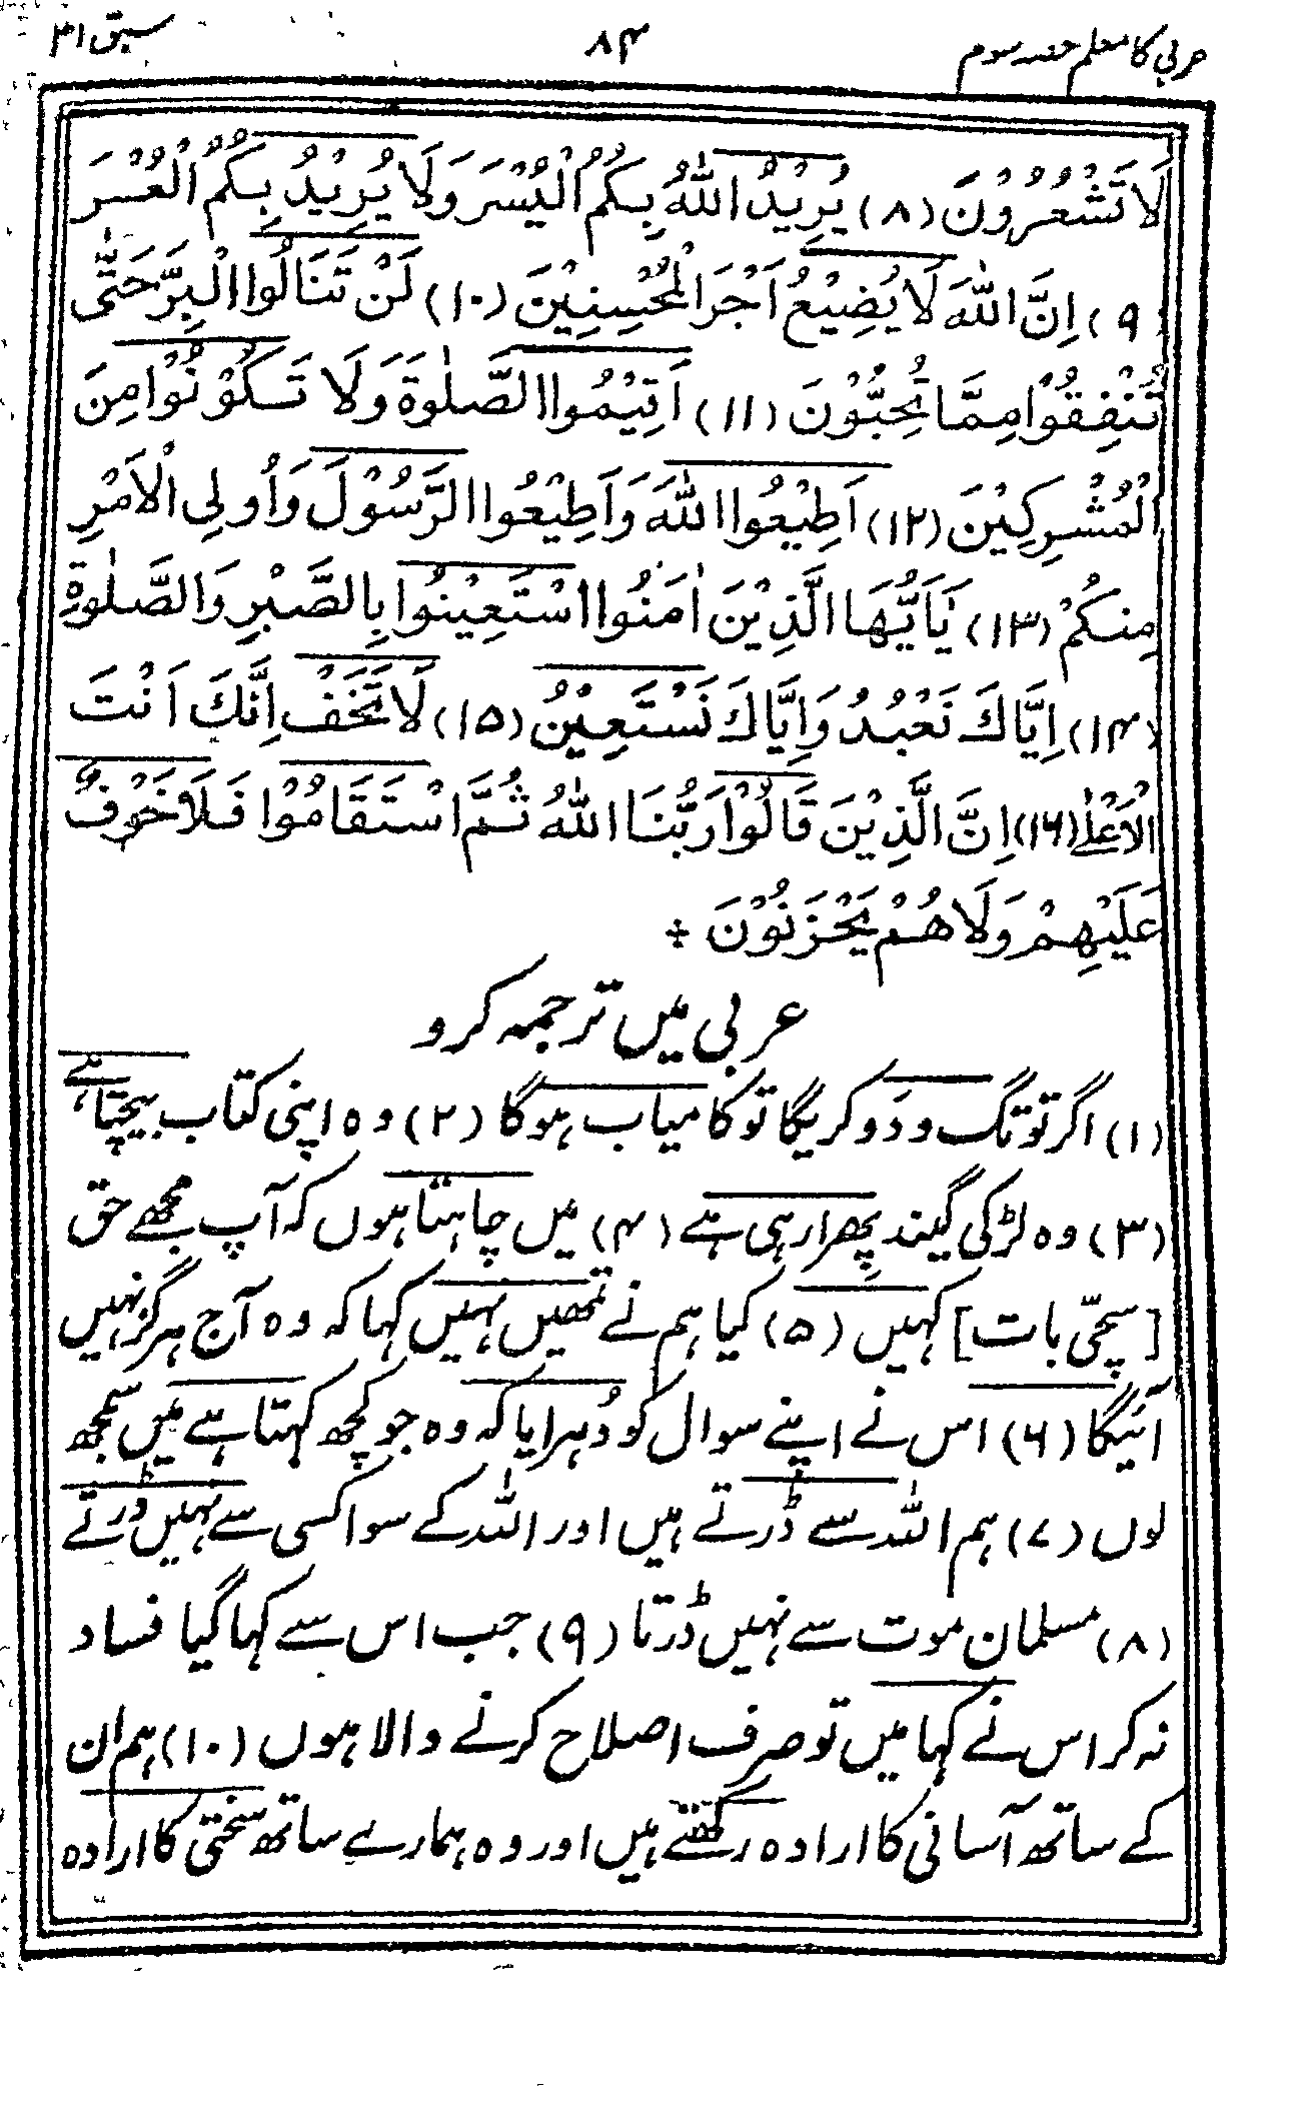 عربی کا معلم حصہ سوم ۸۴ سبق ۳۱
لَا تَشْعُرُوْنَ (۸) یُرِیْدُ اللّٰهُ بِکُمُ الْیُسْرَ وَلَا یُرِیْدُ بِکُمُ الْعُسْرَ
(۹) اِنَّ اللّٰهَ لَا یُضِیْعُ اَجْرَ الْمُحْسِنِیْنَ (۱۰) لَنْ تَنَالُوا الْبِرَّ حَتّٰی
تُنْفِقُوْا مِمَّا تُحِبُّوْنَ (۱۱) اَقِیْمُوا الصَّلٰوةَ وَلَا تَکُوْنُوْا مِنَ
الْمُشْرِکِیْنَ (۱۲) اَطِیْعُوا اللّٰهَ وَاَطِیْعُوا الرَّسُوْلَ وَاُولِی الْاَمْرِ
مِنْکُمْ (۱۳) یٰاَیُّهَا الَّذِیْنَ اٰمَنُوا اسْتَعِیْنُوا بِالصَّبْرِ وَالصَّلٰوةِ
(۱۴) اِیَّاكَ نَعْبُدُ وَاِیَّاكَ نَسْتَعِیْنُ (۱۵) لَا تَخَفْ اِنَّكَ اَنْتَ
الْاَعْلٰی (۱۶) اِنَّ الَّذِیْنَ قَالُوْا رَبُّنَا اللّٰهُ ثُمَّ اسْتَقَامُوْا فَلَا خَوْفٌ
عَلَیْهِمْ وَلَا هُمْ یَحْزَنُوْنَ ÷
عربی میں ترجمہ کرو
(۱) اگر تو تگ و دَو کریگا تو کامیاب ہوگا (۲) وہ اپنی کتاب بیچتا ہے
(۳) وہ لڑکی گیند پِھرا رہی ہے (۴) میں چاہتا ہوں کہ آپ مجھے حق
[سچّی بات] کہیں (۵) کیا ہم نے تمھیں نہیں کہا کہ وہ آج ہرگز نہیں
آئیگا (۶) اس نے اپنے سوال کو دُہرایا کہ وہ جو کچھ کہتا ہے میں سمجھ
لوں (۷) ہم اللّٰہ سے ڈرتے ہیں اور اللّٰہ کے سوا کسی سے نہیں ڈرتے
(۸) مسلمان موت سے نہیں ڈرتا (۹) جب اس سے کہا گیا فساد
نہ کر اس نے کہا میں تو صرف اصلاح کرنے والا ہوں (۱۰) ہم ان
کے ساتھ آسانی کا ارادہ رکھتے ہیں اور وہ ہمارے ساتھ سختی کا ارادہ